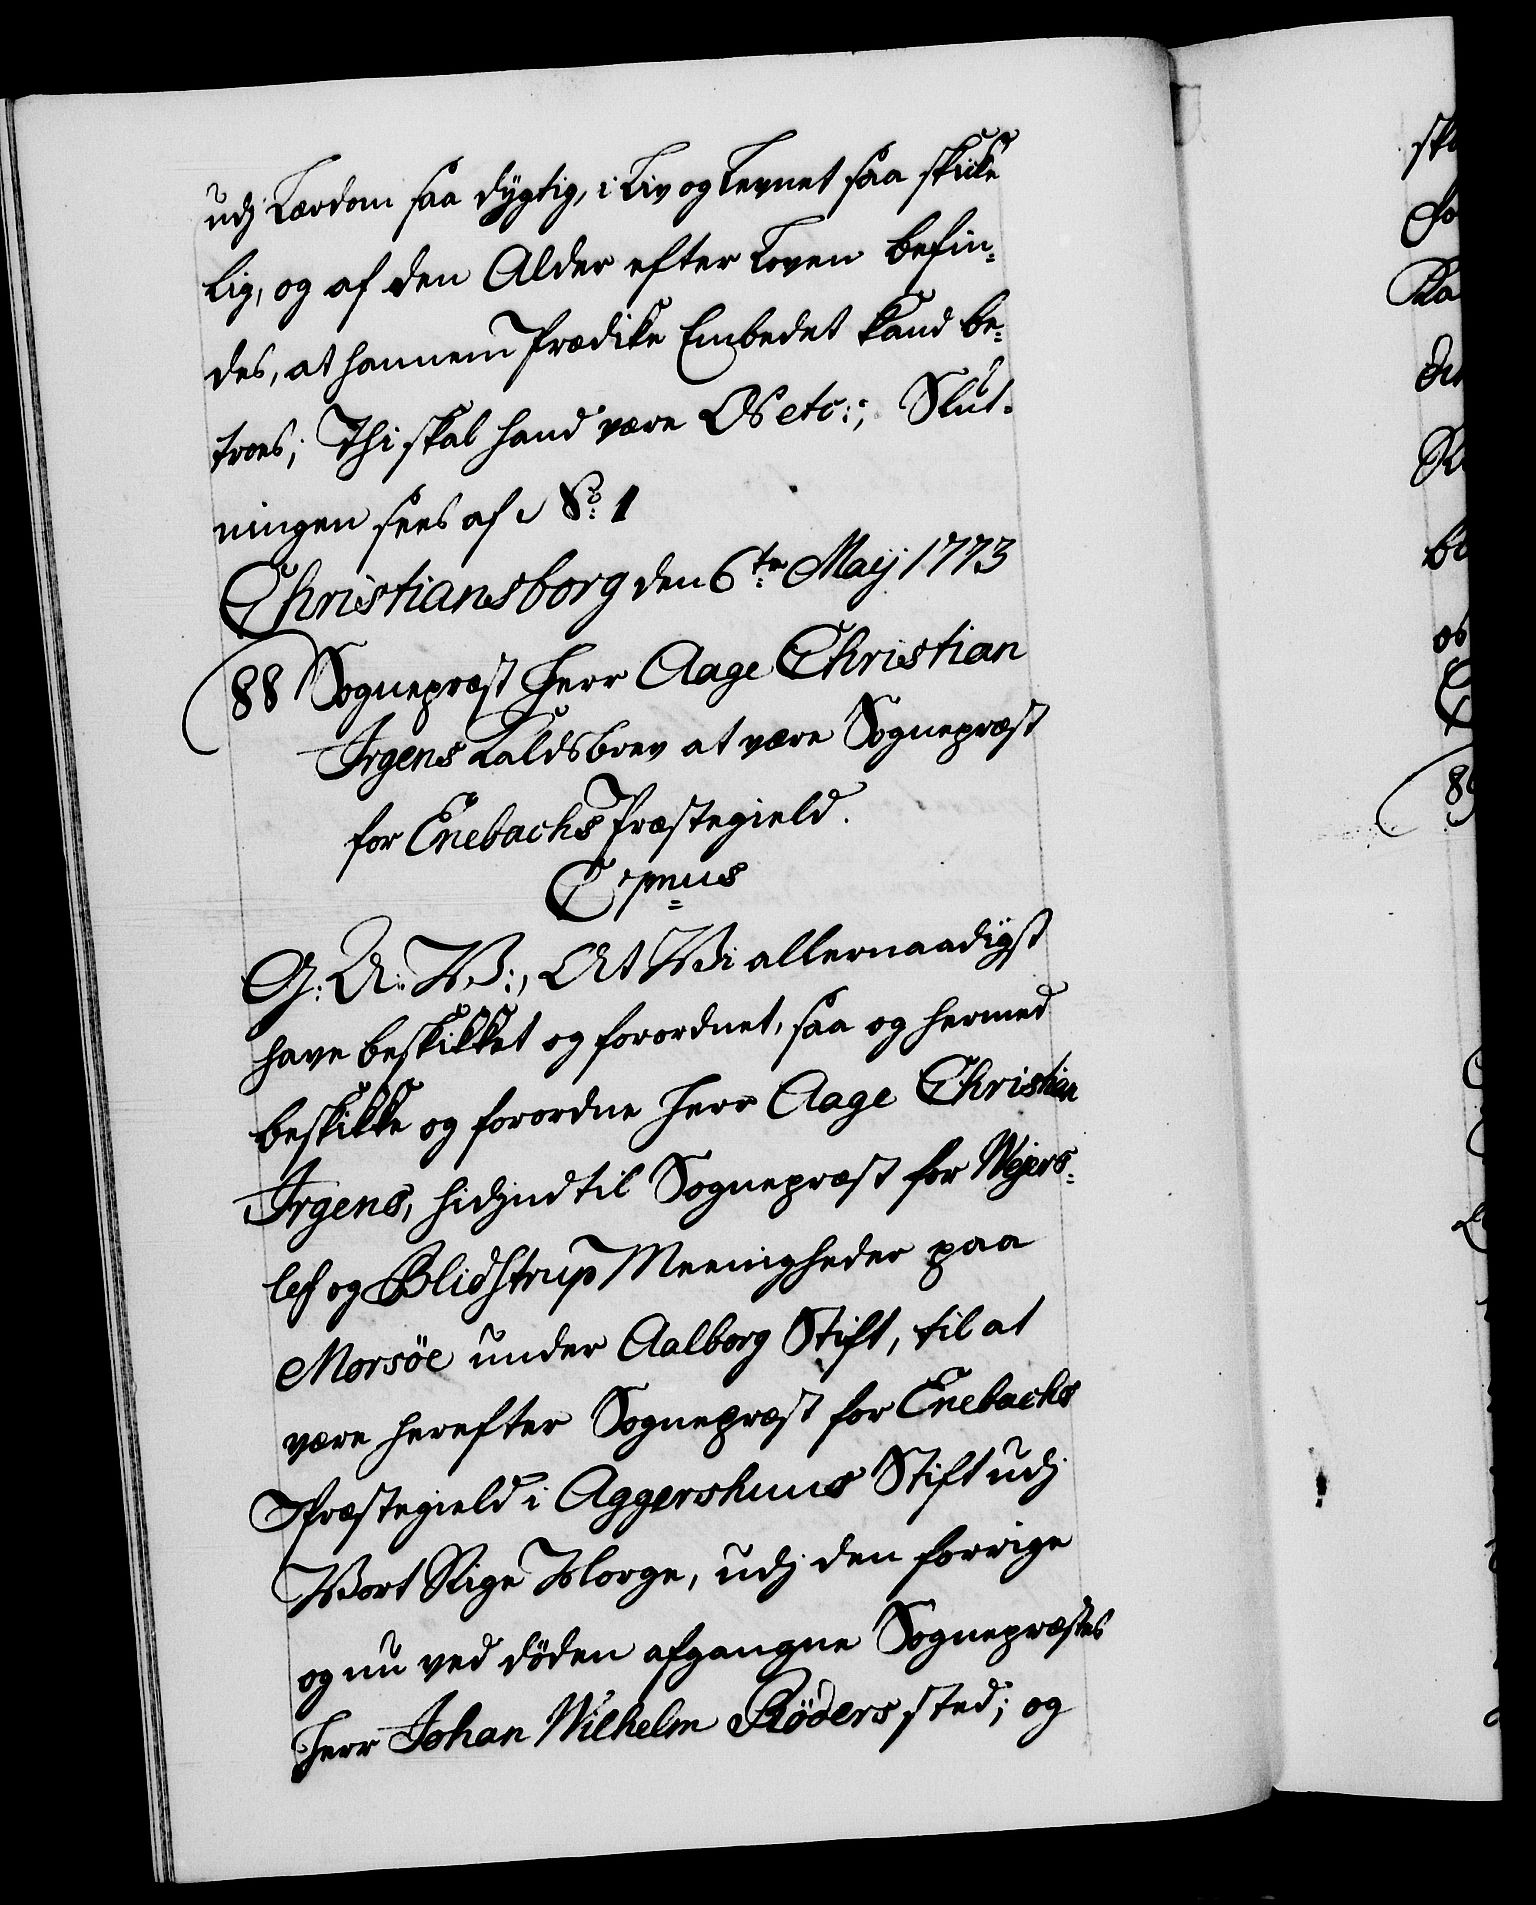 udj Lærdom saa dygtig, i Liv og Levnet saa skike
lig, og af den Alder efter Loven befin-
des, at hannem Prædike Embedet kand be-
troes; Thi skal hand være Os etc:; Slut-
ningen sees af No: 1
Christiansborg den 6te Maij 1773
88 Sognepræst Herr Aage Christian
Irgens Kaldsbrev at være Sognepræst
for Enebachs Præstegield.
C: 7mus
G: A: W:, At Wi allernaadigst
have beskikket og forordnet, saa og hermed
beskikke og forordne Herr Aage Christian
Irgens, hidindtil Sognepræst for Wejers-
lef og Blidstrup Meenigheder paa
Morsöe under Aalborg Stift, til at
være herefter Sognepræst for Enebachs
Præstegield i Aggershuus Stift udj
Wort Rige Norge, udj den forrige
og nu ved döden afgangne Sognepræstes
Herr Johan Wilhelm Röders sted; og